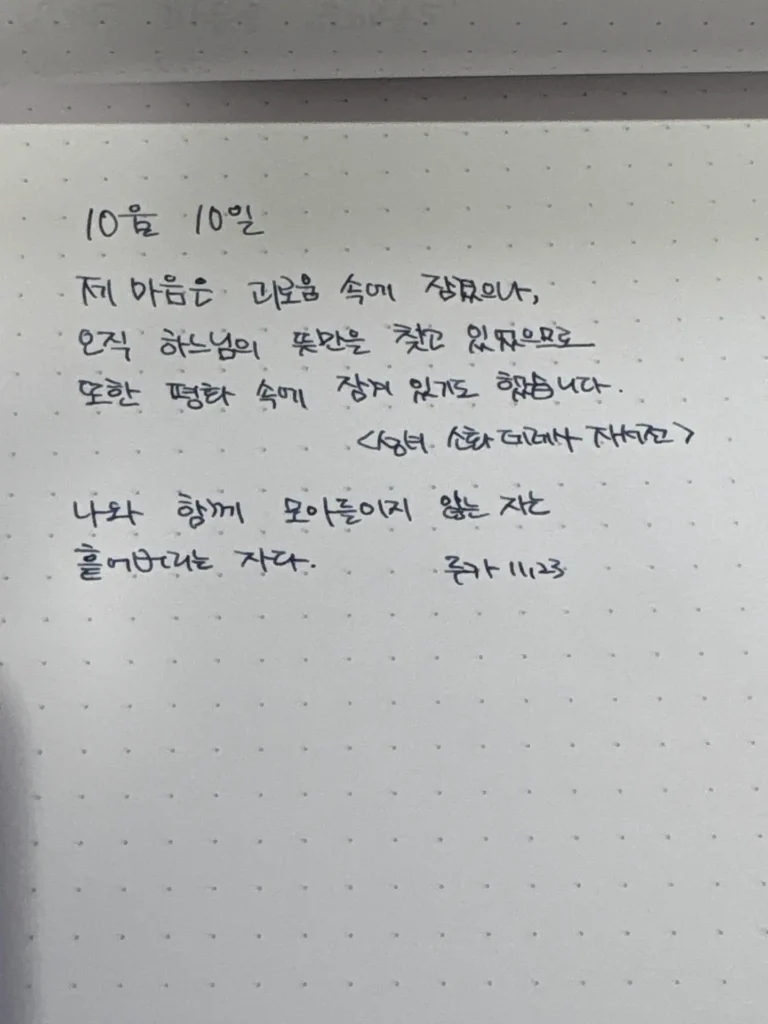 10월 10일
제 마음은 괴로움 속에 잠겼으나,
오직 하느님의 뜻만을 찾고 있었으므로
또한 평화 속에 잠겨 있기도 했습니다.
<성녀 소화 데레사 자서전>
나와 함께 모아들이지 않는 자는
흩어버리는 자다. 루카 11,23